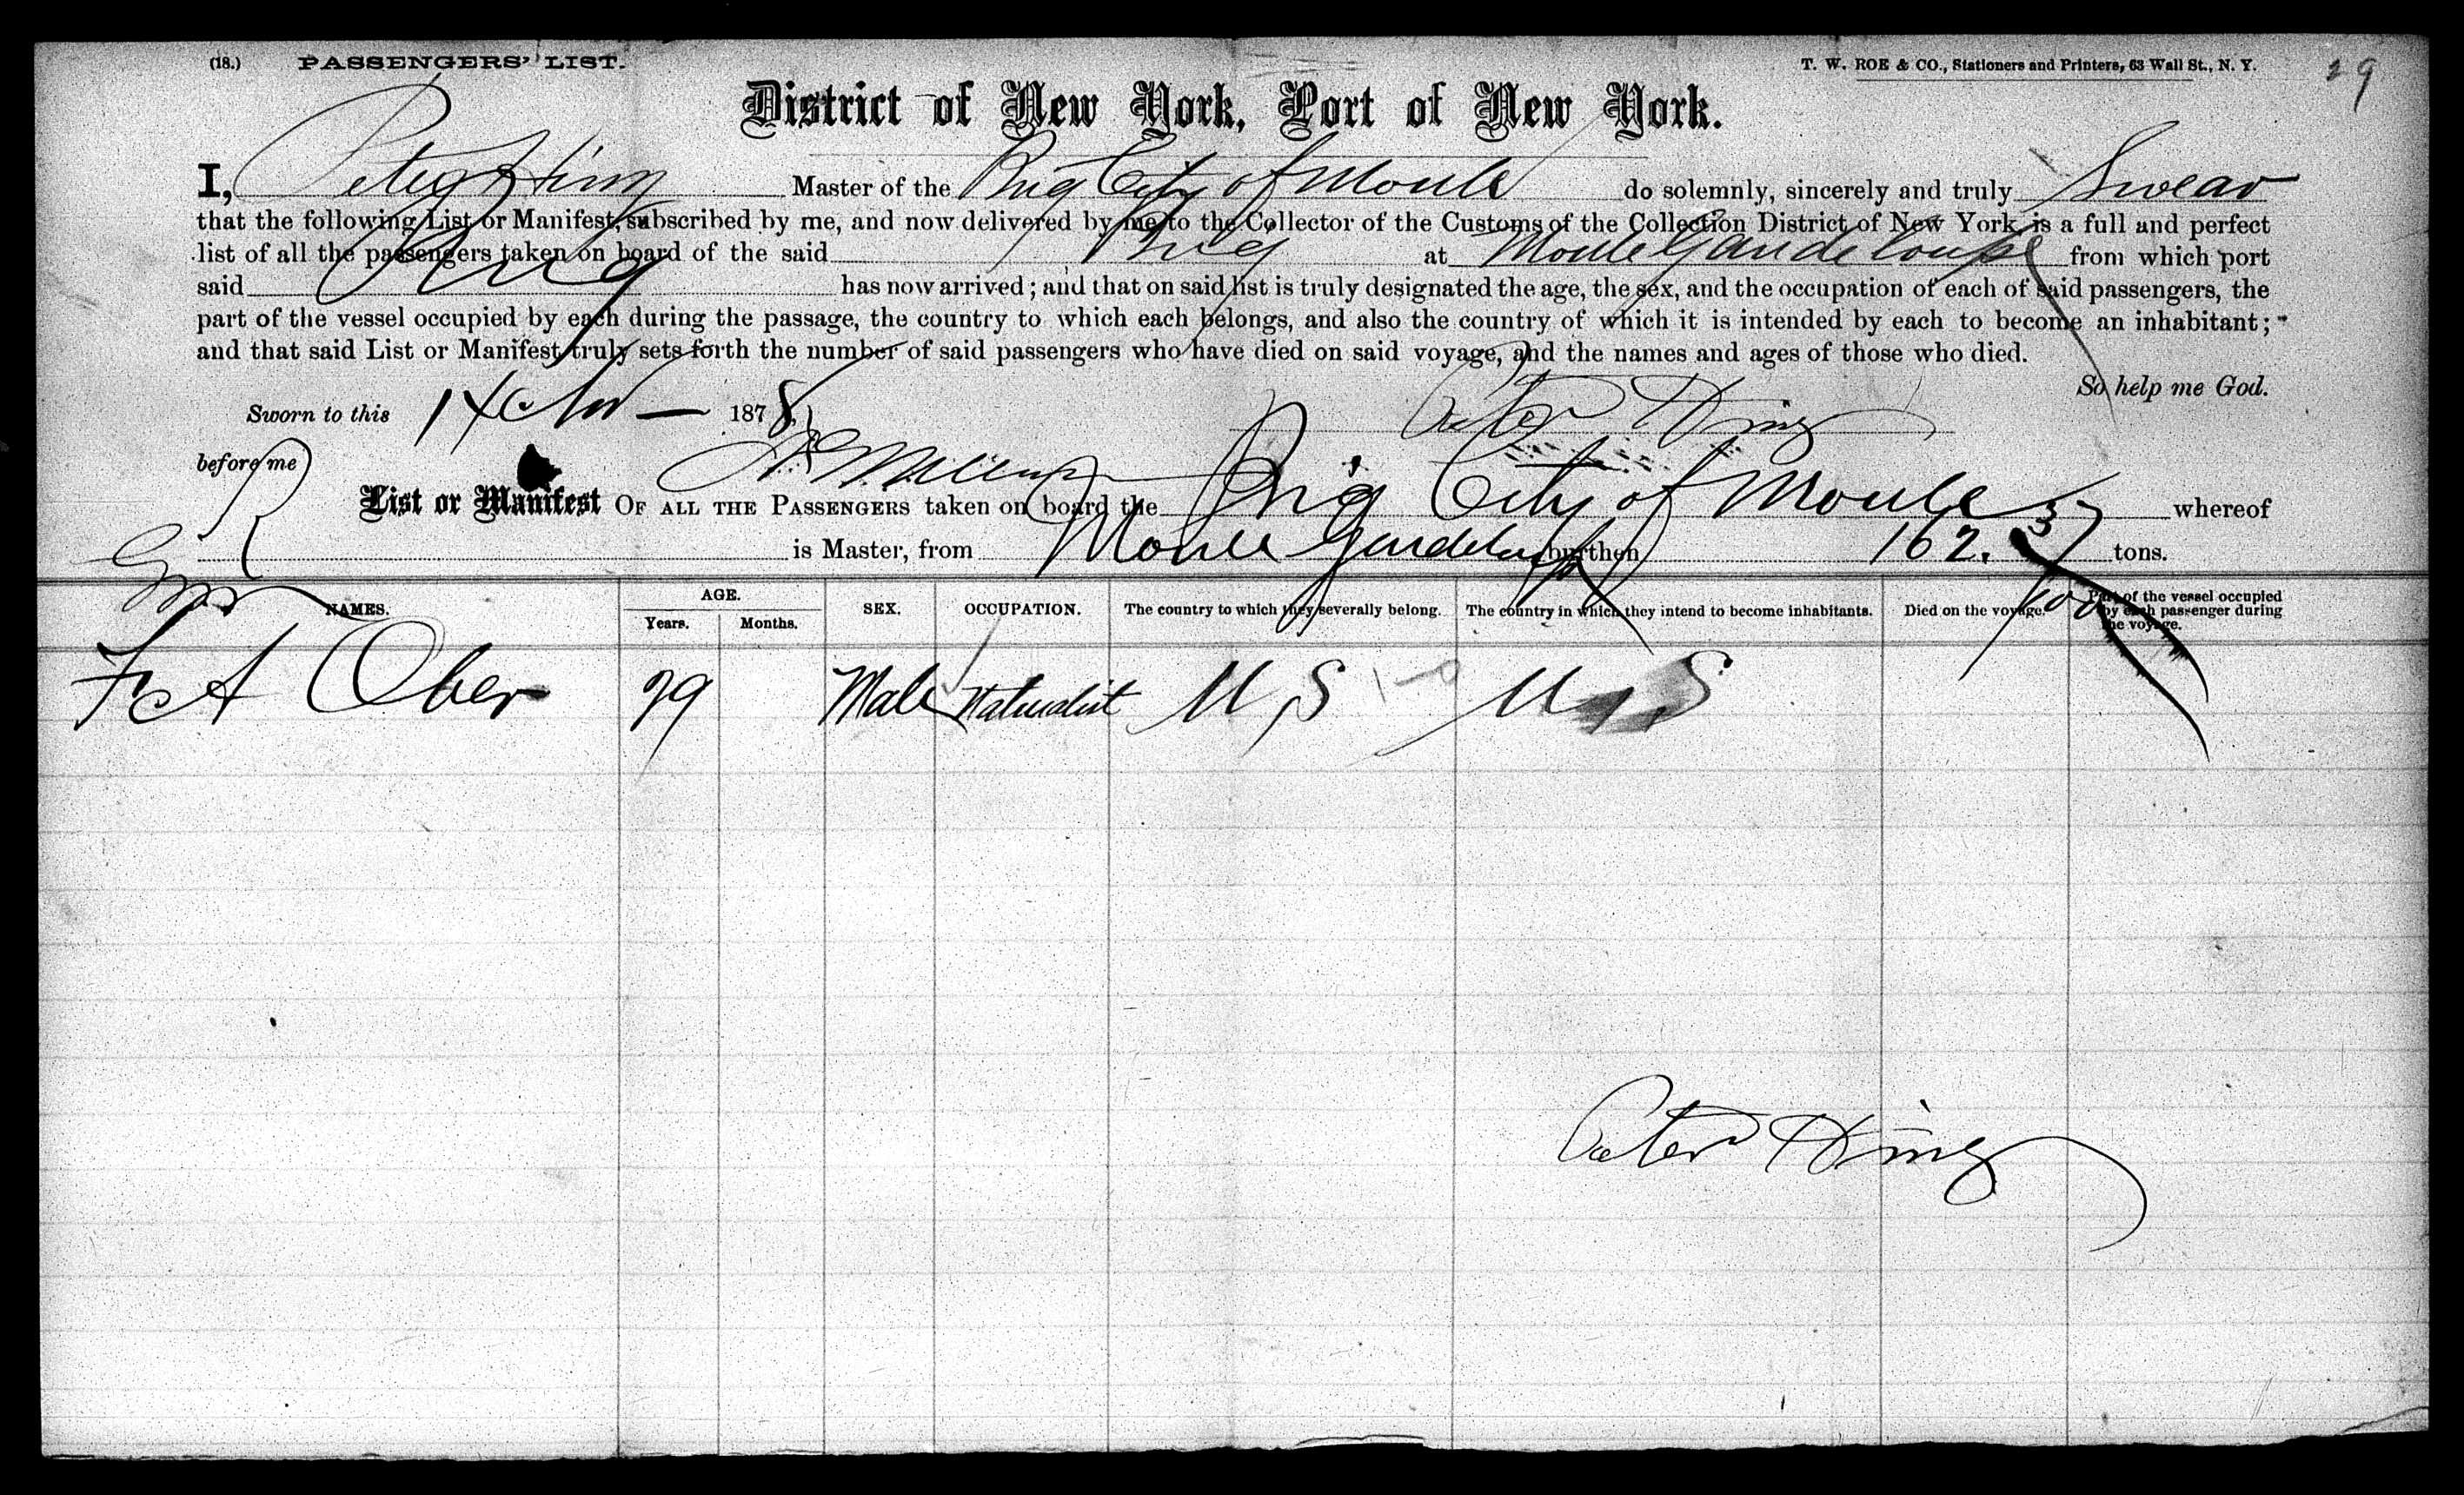 (18.) PASSENGERS' LIST. T. W. ROE & CO., Stationers and Printers, 63 Wall St., N. Y. 29
District of New York, Port of New York.
I, Peter Master of the Brig City of Moule do solemnly, sincerely and truly Swear
that the following List or Manifest, subscribed by me, and now delivered by me to the Collector of the Customs of the Collection District of New York, is a full and perfect
list of all the passengers taken on board of the said Brig at Moule Gaudeloupe from which port
said Brig has now arrived; and that on said list is truly designated the age, the sex, and the occupation of each of said passengers, the
part of the vessel occupied by each during the passage, the country to which each belongs, and also the country of which it is intended by each to become an inhabitant;
and that said List or Manifest truly sets forth the number of said passengers who have died on said voyage, and the names and ages of those who died.
So help me God.
Sworn to this 14 Nov 1878 Peter
before me
List or Manifest OF ALL THE PASSENGERS taken on board the Brig City of Moule whereof
is Master, from Moule burthen 162. 37/100 tons.
NAMES. AGE. Years. Months. SEX. OCCUPATION. The country to which they severally belong. The country in which they intend to become inhabitants. Died on the voyage. Part of the vessel occupied by each passenger during the voyage.
F A Ober 29 Male Naturalist U S U S
Peter